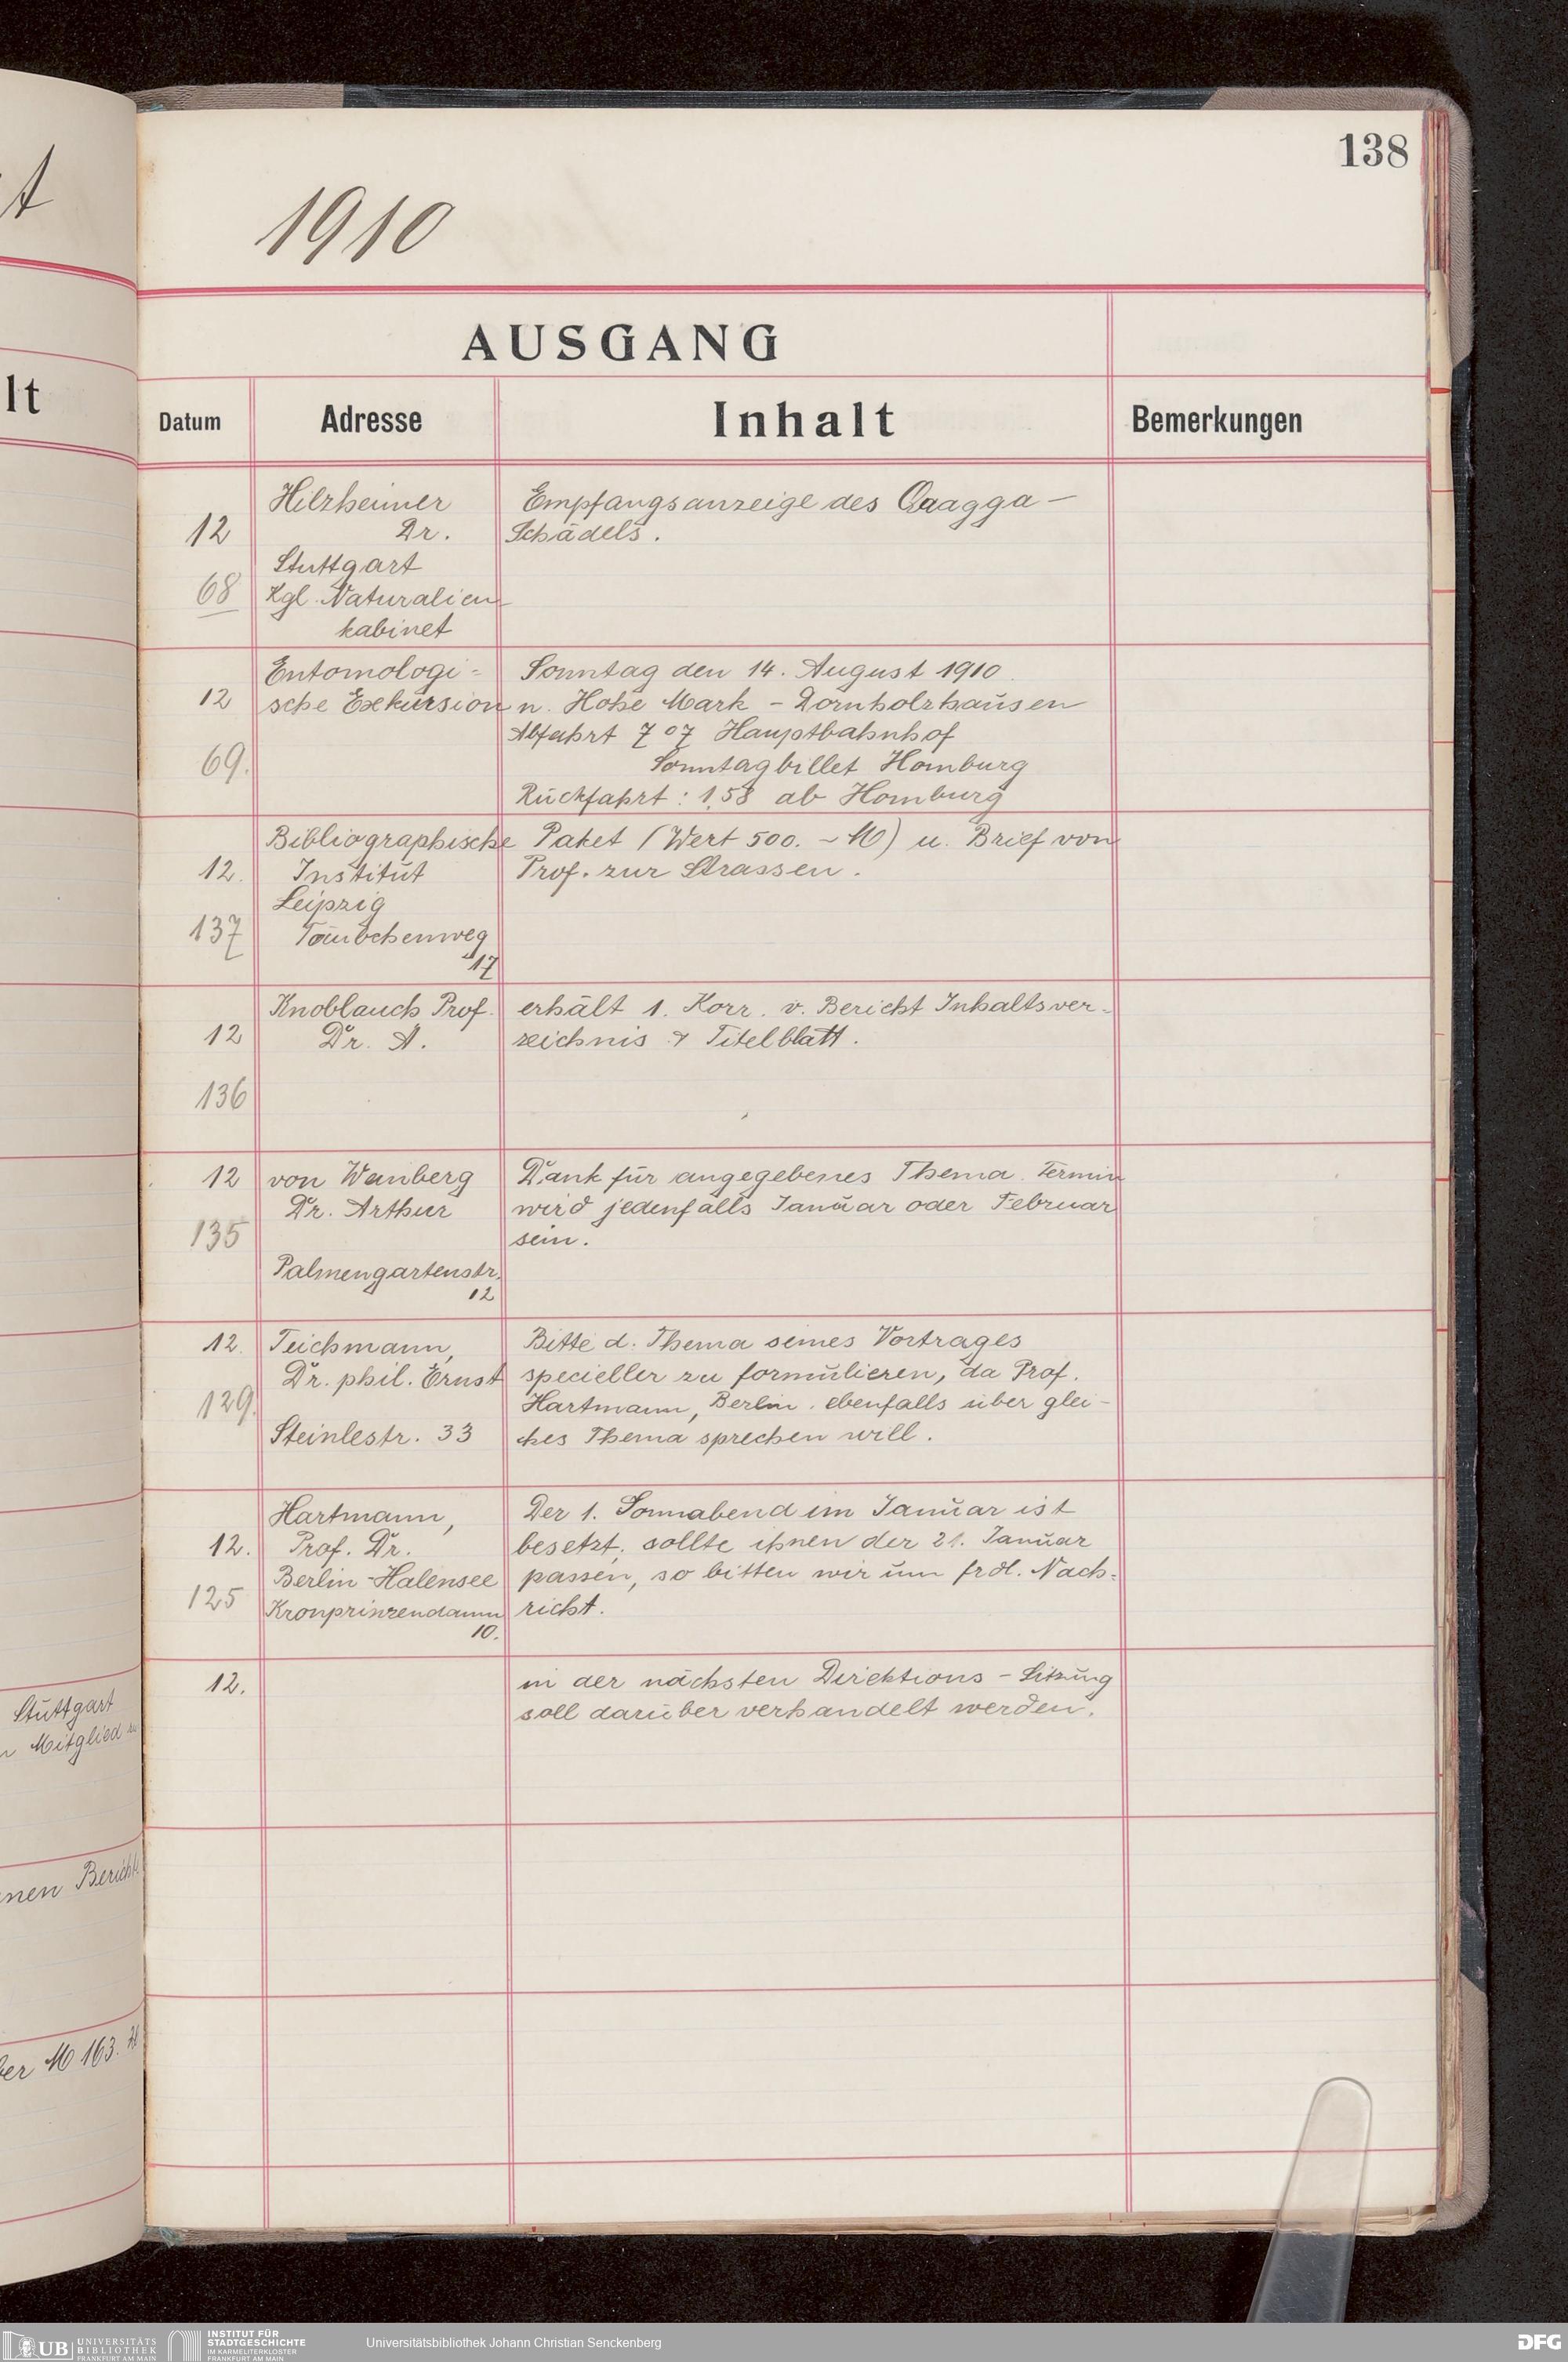 138
1910
AUSGANG
Datum Adresse Inhalt Bemerkungen
Hilzheimer
12 Dr.
Stuttgart
68 Kgl. Naturalien
kabinet
Empfangsanzeige des Quagga-
Schädels.
Entomologi-
12 sche Exkursion
69.
Sonntag den 14. August 1910
n. Hohe Mark - Dornholzhausen
Abfahrt 7 07 Hauptbahnhof
Sonntagbillet Homburg
Rückfahrt: 1,58 ab Homburg
Bibliographische
12. Institut
Leipzig
137 Täubchenweg
17
Paket (Wert 500. - M) u. Brief von
Prof. zur Strassen.
Knoblauch Prof.
12 Dr. A.
136
erhält 1. Korr. v. Bericht Inhaltsver-
zeichnis & Titelblatt.
12 von Weinberg
Dr. Arthur
135
Palmengartenstr.
12
Dank für angegebenes Thema. Termin
wird jedenfalls Januar oder Februar
sein.
12. Teichmann,
Dr. phil. Ernst
129.
Steinlestr. 33
Bitte d. Thema seines Vortrages
specieller zu formulieren, da Prof.
Hartmann, Berlin ebenfalls über glei-
ches Thema sprechen will.
Hartmann,
12. Prof. Dr.
Berlin-Halensee
125 Kronprinzendamm
10.
Der 1. Sonnabend im Januar ist
besetzt, sollte ihnen der 21. Januar
passen, so bitten wir um frdl. Nach-
richt.
12.
in der nächsten Direktions-Sitzung
soll darüber verhandelt werden.
t
lt
Stuttgart
Mitglied
nen Bericht
ber M 163.
UB UNIVERSITÄTS
BIBLIOTHEK
FRANKFURT AM MAIN
INSTITUT FÜR
STADTGESCHICHTE
IM KARMELITERKLOSTER
FRANKFURT AM MAIN
Universitätsbibliothek Johann Christian Senckenberg
DFG